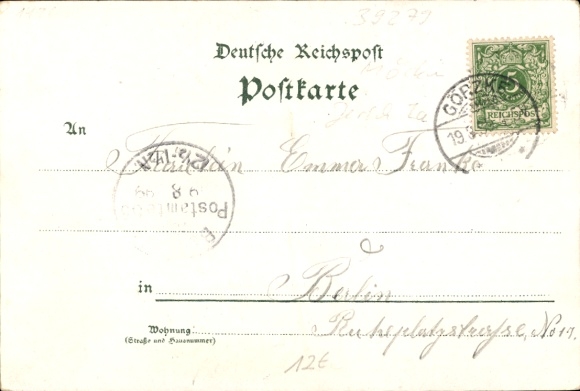 39279
Deutsche Reichspost
Postkarte
5
REICHSPOST
GÖRZKE
19
An
Fräulein Emma Franke
Postamt
9 8 99
in Berlin
Wohnung
(Straße und Hausnummer)
Ruheplatzstrasse, No 17.
12€